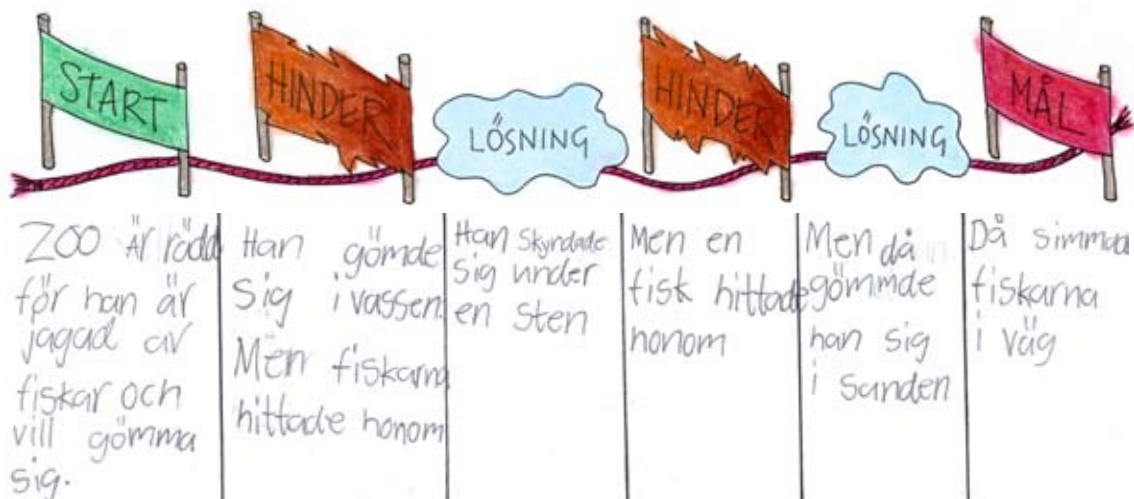 START
HINDER
LÖSNING
HINDER
LÖSNING
MÅL
ZOO Är rädd
för han är
jagad av
fiskar och
vill gömma
sig.
Han gömde
sig i vassen.
Men fiskarna
hittade honom
Han skyndade
sig under
en sten
Men en
fisk hittade
honom
Men då
gömmde
han sig
i sanden
Då simmade
fiskarna
i väg